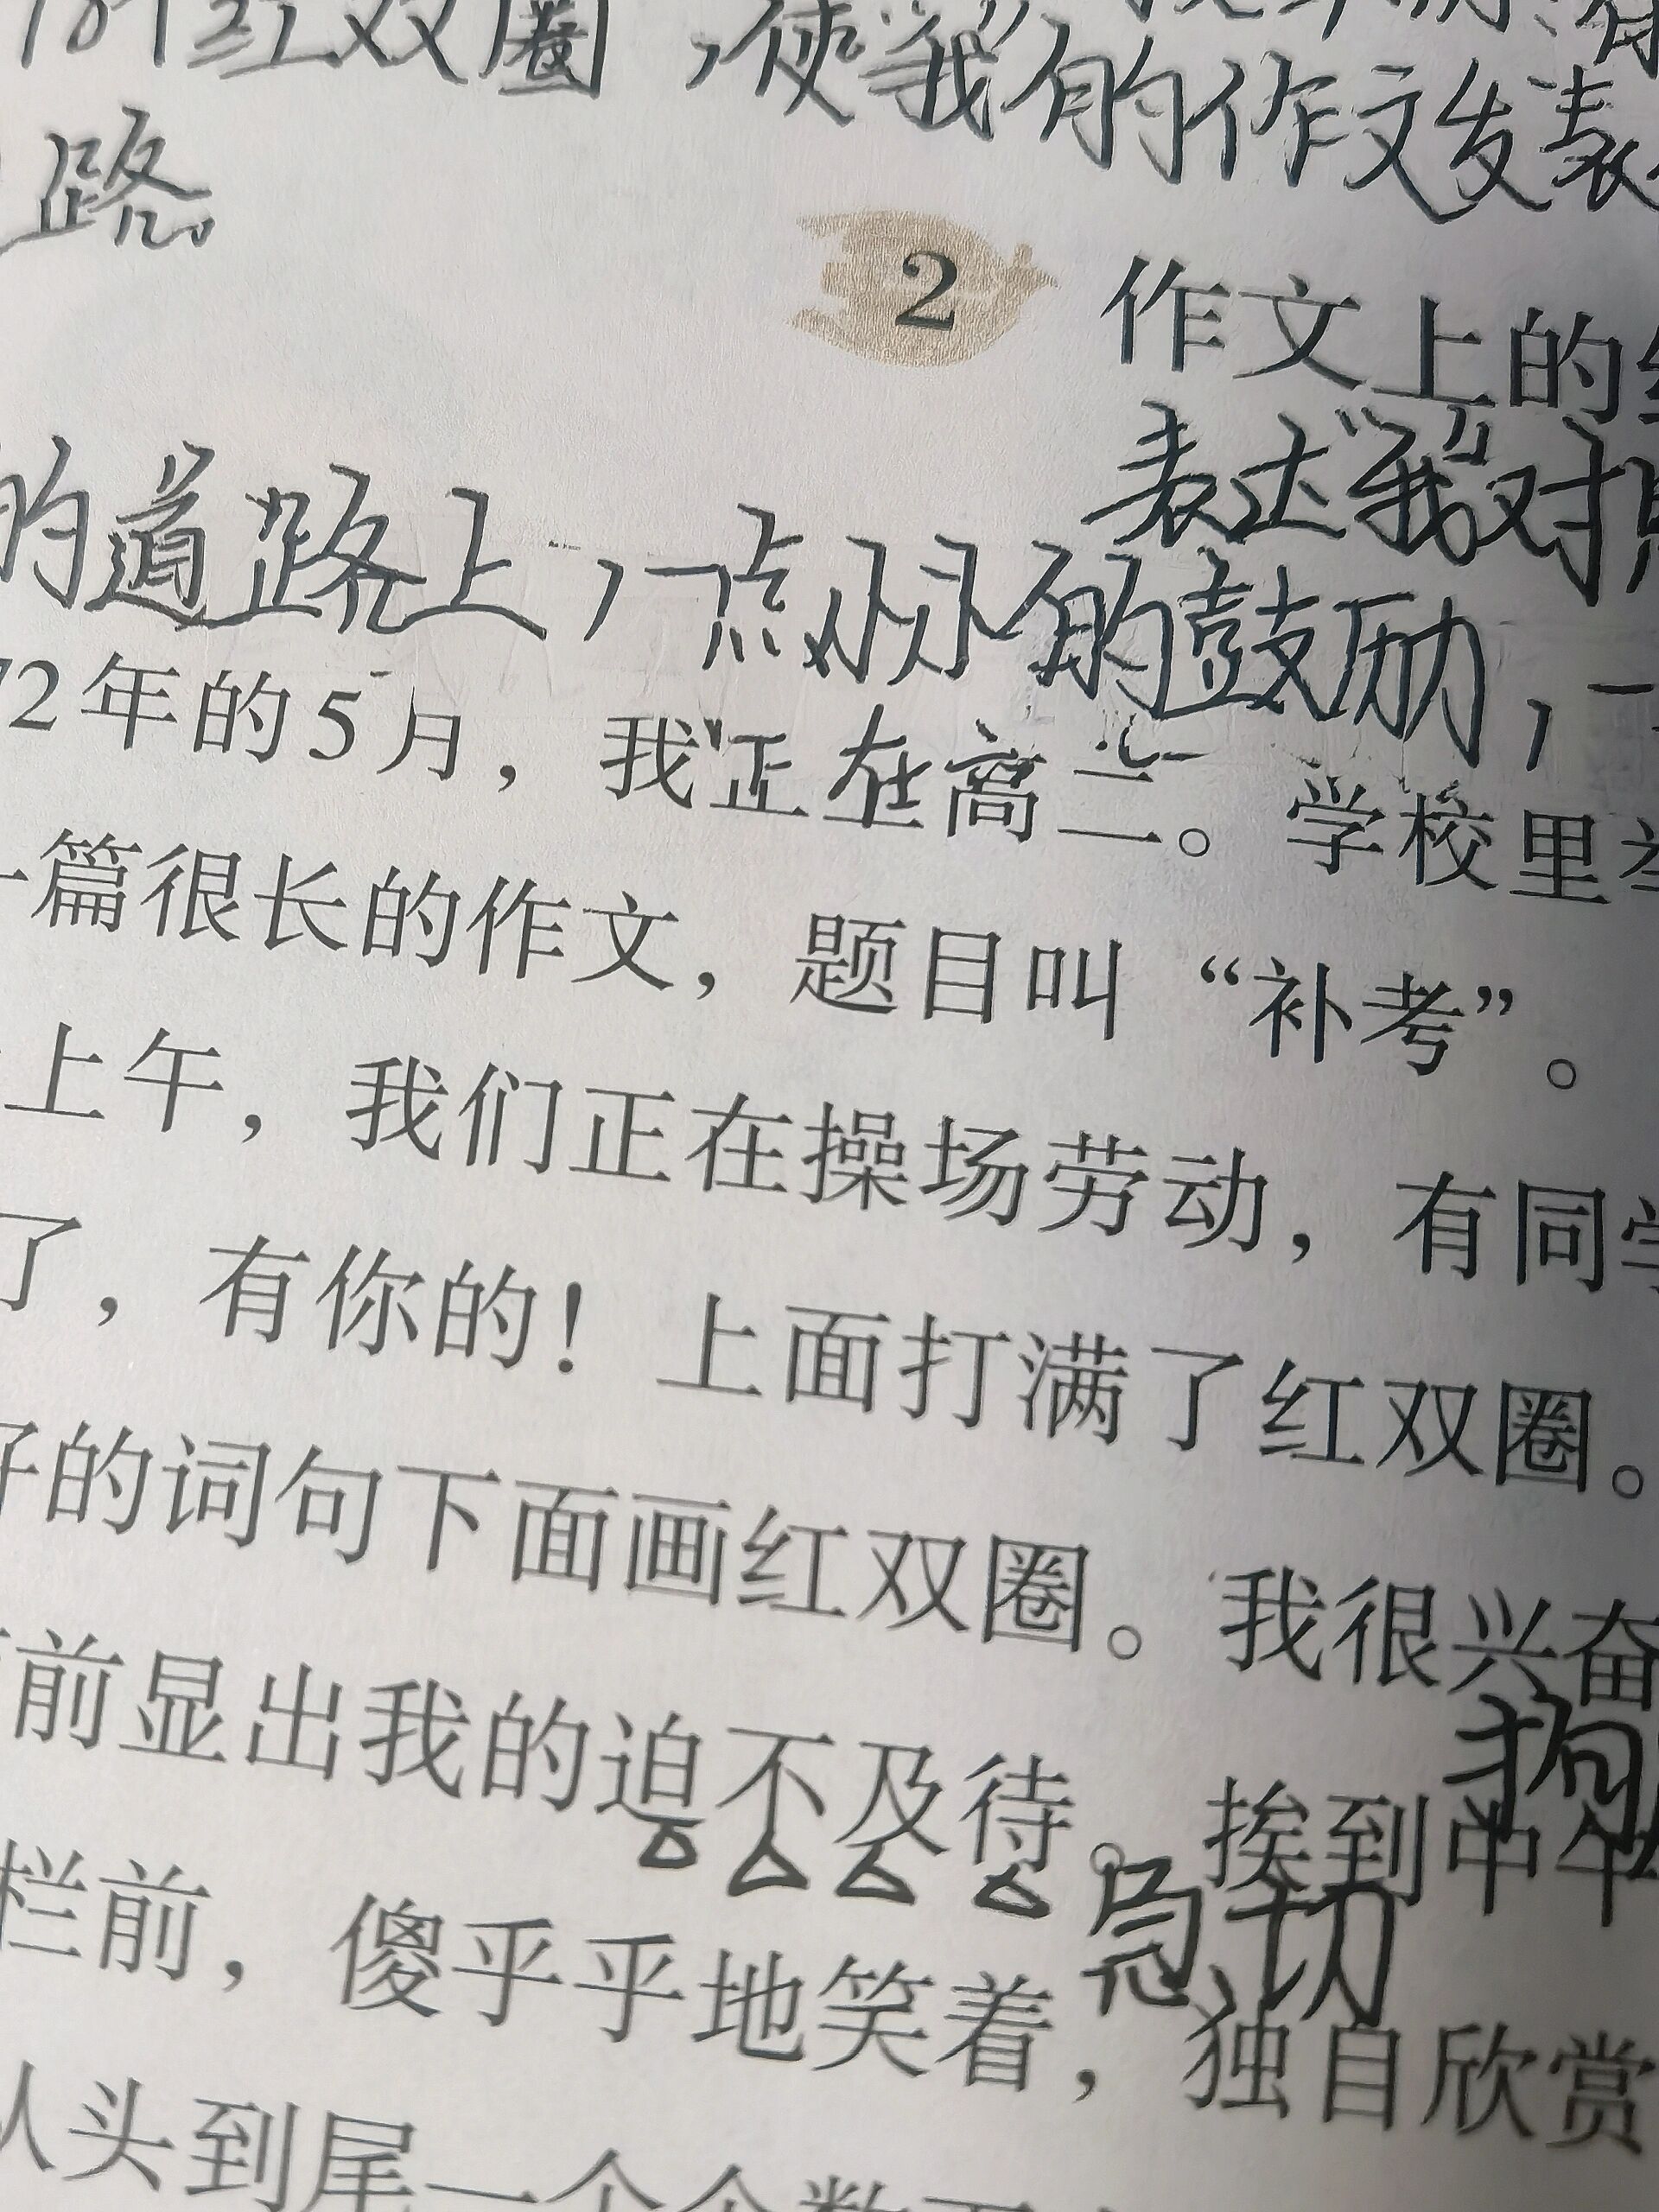 78个红双圈，使“我”有的作文发表
路。
2 作文上的
表述“我”对
的道路上，一点小小的鼓励，
72年的5月，我正在高二。学校里
一篇很长的作文，题目叫“补考”。
上午，我们正在操场劳动，有同学
了，有你的！上面打满了红双圈。
好的词句下面画红双圈。我很兴奋
前显出我的迫不及待。挨到中午
急切
栏前，傻乎乎地笑着，独自欣赏
从头到尾一个个数